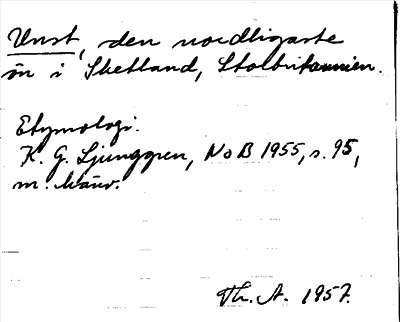 Unst, den nordligaste
ön i Shetland, Storbritannien.
Etymologi.
K. G. Ljunggren, NoB 1955, s. 95,
m. hänv.
Th. A. 1957.